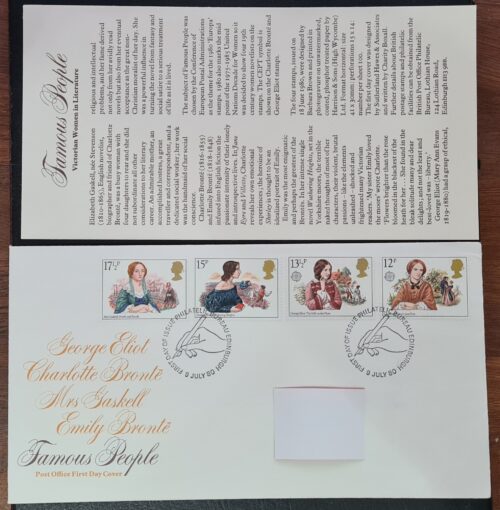 Famous People
Victorian Women in Literature
Elizabeth Gaskell, née Stevenson
(1810-1865), English novelist,
biographer and friend of Charlotte
Brontë, was a busy woman with
her writing, even though she did
not subordinate all other
considerations to her literary
career. An admirable mother, an
accomplished hostess, a great
traveller and letter-writer, and a
dedicated social worker; her work
was the handmaid of her social
conscience.
Charlotte Brontë (1816-1855)
and Emily Brontë (1818-1848)
infused into English fiction the
passionate intensity of their lonely
and introspective lives. In Jane
Eyre and Villette, Charlotte
reveals her own emotional
experiences; the heroine of
Shirley is thought to be an
idealised portrait of Emily.
Emily was the most enigmatic
and perhaps the greatest of the
Brontës. In her intense single
novel Wuthering Heights, set in the
Yorkshire moors, the terrible
naked thoughts of almost elemental
characters, their violent, brutal
passions - like the elements
unleashed - shocked and often
frightened many Victorian
readers. 'My sister Emily loved
the moors' wrote Charlotte.
'Flowers brighter than the rose
bloomed in the blackest of the
heath for her... She found in the
bleak solitude many and dear
delights; and not the least and
best-loved was -liberty.'
George Eliot (Mary Ann Evans
1819-1880) had a grasp of ethical,
religious and intellectual
problems, and her fame derived
not only from her avidly read
novels but also from her eventual
Christian moralist of her day. She
was in a sense pioneer in
turning the novel from fantasy and
social satire to a serious treatment
of life as it is lived.
The subject of Famous People was
chosen by the Conference of
European Postal Administrations
as the theme for the 1980 'Europa'
stamps. 1980 also marks the mid
point of the 1975/85 United
Nations Decade for Women so it
was decided to show four 19th
century women novelists on the
stamps. The CEPT symbol is
shown on the Charlotte Brontë and
George Eliot stamps.
The four stamps, issued on
9 July 1980, were designed by
Barbara Brown and printed in
photogravure on unwatermarked,
phosphor coated paper by
Harrison & Sons (High Wycombe)
Ltd. Format horizontal: size
41 x 30mm: perforations 15 x 14:
number per sheet 100.
The first day cover was designed
by Sutherland Hawes & Associates
and written by Charity Boxall.
Further details about British
postage stamps and philatelic
facilities can be obtained from the
British Post Office Philatelic
Bureau, Lothian House,
124 Lothian Road,
Edinburgh EH3 9BB.
17½P
15P
13½P
12P
FIRST DAY OF ISSUE PHILATELIC BUREAU EDINBURGH
9 JULY 80
FIRST DAY OF ISSUE PHILATELIC BUREAU EDINBURGH
9 JULY 80
George Eliot
Charlotte Brontë
Mrs Gaskell
Emily Brontë
Famous People
Post Office First Day Cover